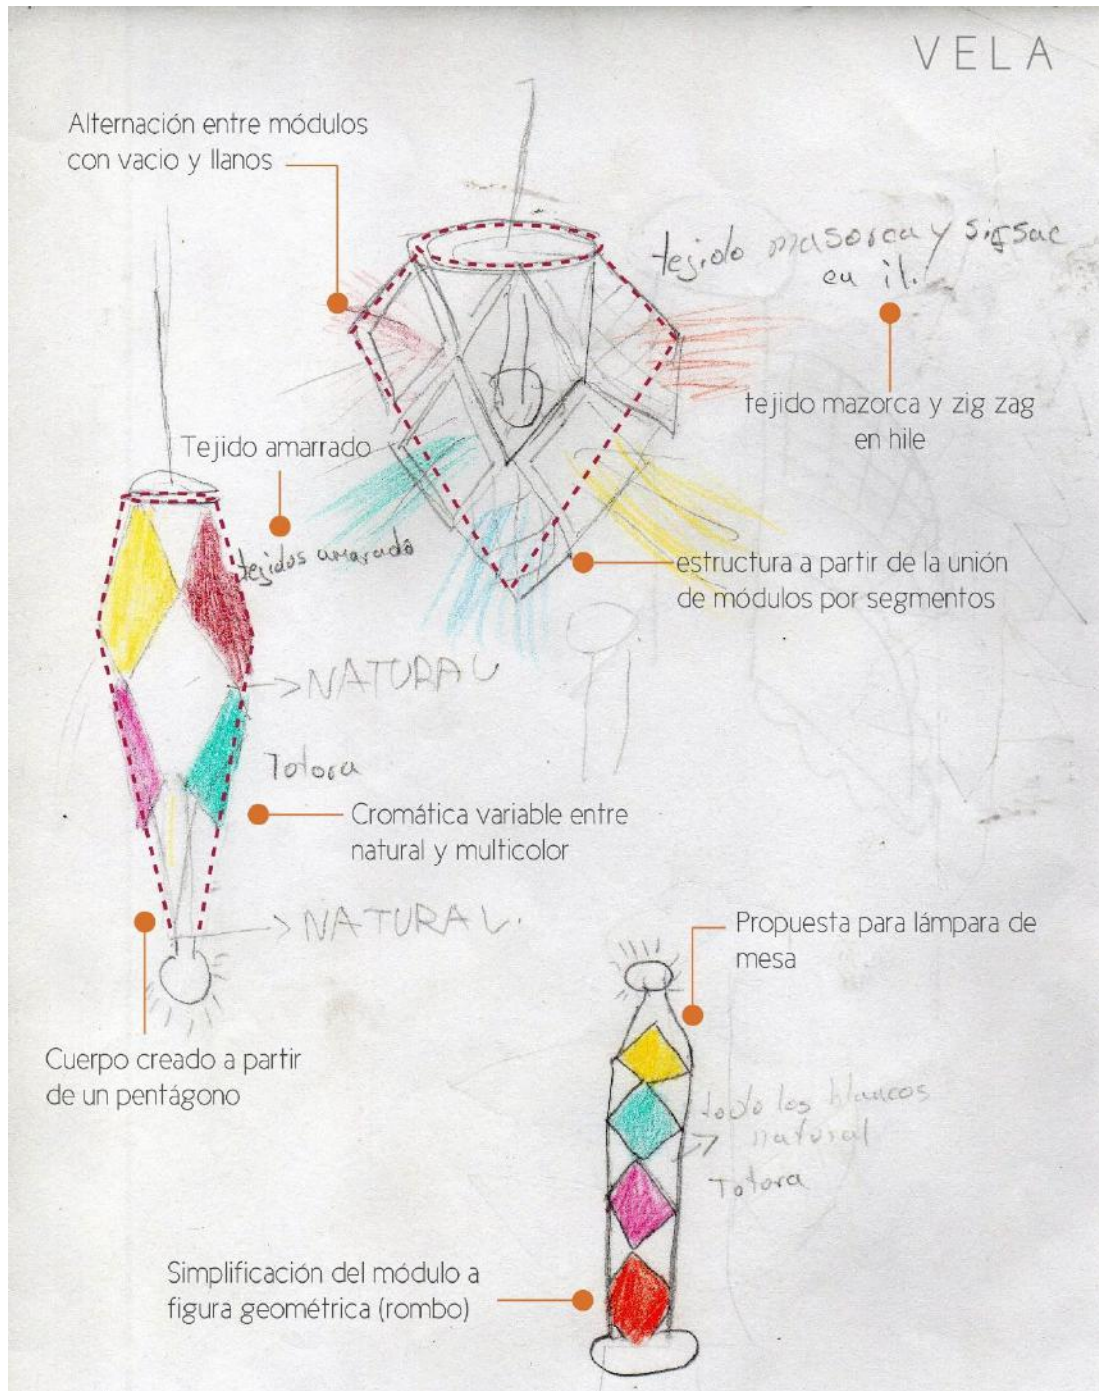 VELA
Alternación entre módulos
con vacio y llanos
tejido masorca y sigsac
en il.
tejido mazorca y zig zag
en hile
Tejido amarrado
tejidos amarado
estructura a partir de la unión
de módulos por segmentos
NATURAL
Totora
Cromática variable entre
natural y multicolor
NATURAL.
Propuesta para lámpara de
mesa
Cuerpo creado a partir
de un pentágono
todo los blancos
natural
Totora
Simplificación del módulo a
figura geométrica (rombo)